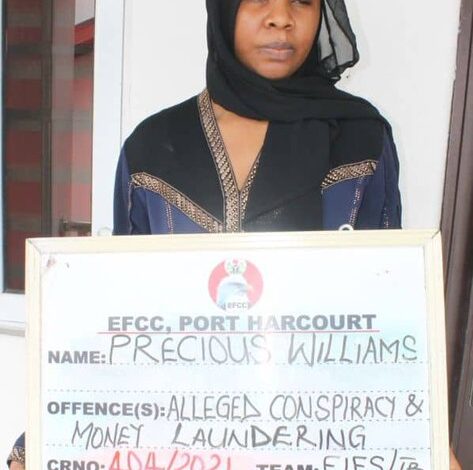 EFCC
EFCC, PORT HARCOURT
NAME: PRECIOUS WILLIAMS
OFFENCE(S): ALLEGED CONSPIRACY &
MONEY LAUNDERING
CRNO: ADA/2021 TEAM: